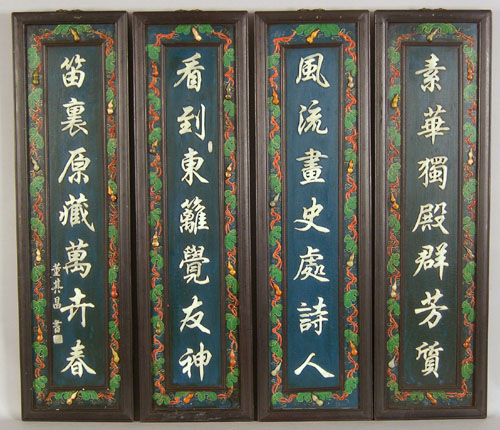 素華獨殿群芳質
風流畫史處詩人
看到東籬覺友神
笛裏原藏萬卉春
董其昌書